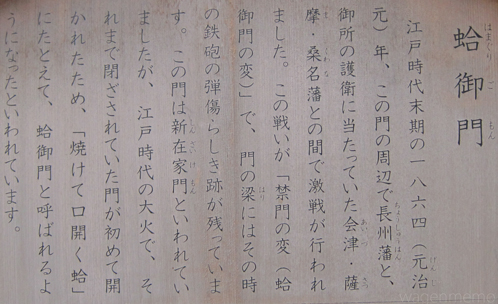 蛤御門
江戸時代末期の一八六四（元治
元）年、この門の周辺で長州藩と、
御所の護衛に当たっていた会津・薩
摩・桑名藩との間で激戦が行われ
ました。この戦いが「禁門の変（蛤
御門の変）」で、門の梁にはその時
の鉄砲の弾傷らしき跡が残っていま
す。この門は新在家門といわれてい
ましたが、江戸時代の大火で、そ
れまで閉ざされていた門が初めて開
かれたため、「焼けて口開く蛤」
にたとえて、蛤御門と呼ばれるよ
うになったといわれています。